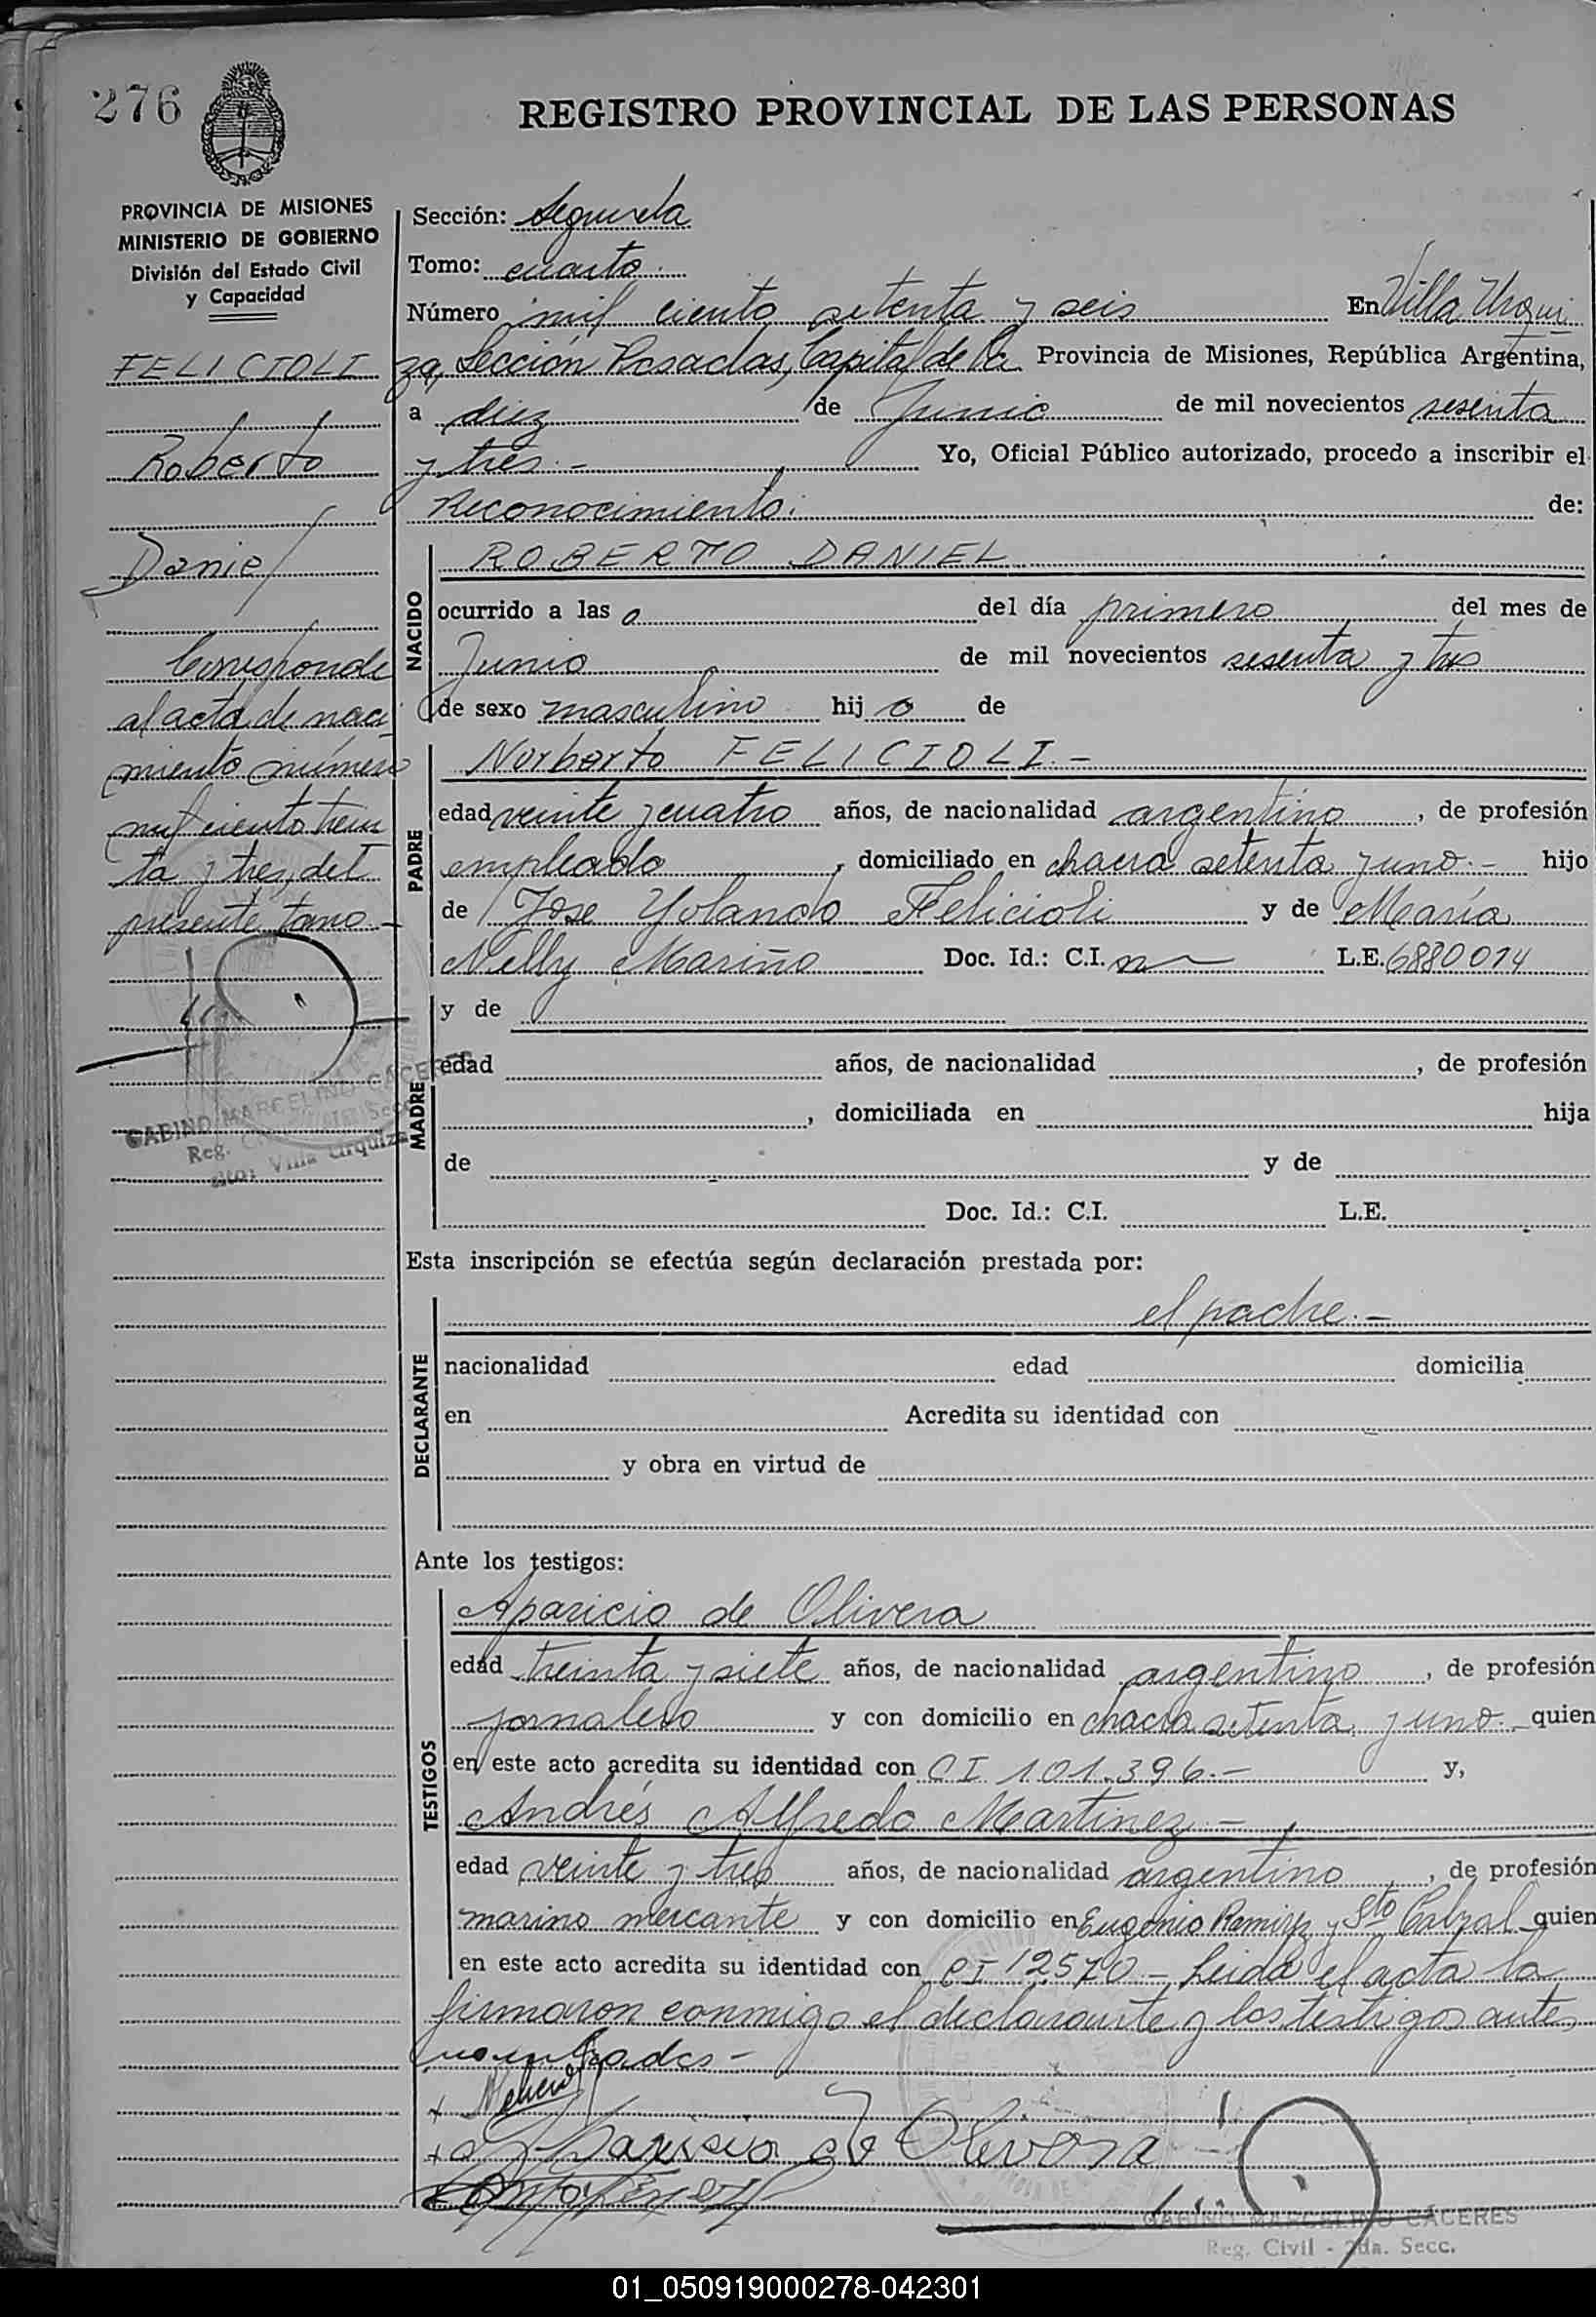 276
REGISTRO PROVINCIAL DE LAS PERSONAS
PROVINCIA DE MISIONES
MINISTERIO DE GOBIERNO
División del Estado Civil
y Capacidad
FELICIOLI
Roberto
Daniel
Corresponde
al acta de naci
miento número
mil ciento trein
ta y tres, del
presente tomo -
GABINO MARCELINO CÁCERES
Reg. Civil Secc.
Villa Urquiza
Sección: Segunda
Tomo: cuarto.
Número mil ciento setenta y seis En Villa Urqui
za, Sección Posadas, Capital de la Provincia de Misiones, República Argentina,
a diez de Junio de mil novecientos sesenta
y tres.- Yo, Oficial Público autorizado, procedo a inscribir el
Reconocimiento. de:
NACIDO
ROBERTO DANIEL
ocurrido a las o del día primero del mes de
Junio de mil novecientos sesenta y tres
de sexo masculino hij o de
PADRE
Norberto FELICIOLI.-
edad veinte y cuatro años, de nacionalidad argentino, de profesión
empleado, domiciliado en chacra setenta y uno.- hijo
de Jose Yolando Felicioli y de María
Nelly Mariño Doc. Id.: C.I. L.E. 6880014
MADRE
y de
edad años, de nacionalidad , de profesión
, domiciliada en hija
de y de
Doc. Id.: C.I. L.E.
Esta inscripción se efectúa según declaración prestada por:
DECLARANTE
el padre.-
nacionalidad edad domicilia
en Acredita su identidad con
y obra en virtud de
Ante los testigos:
TESTIGOS
Aparicio de Olivera
edad treinta y siete años, de nacionalidad argentino, de profesión
jornalero y con domicilio en chacra setenta y uno. quien
en este acto acredita su identidad con CI 101.396.- y,
Andrés Alfredo Martinez.-
edad veinte y tres años, de nacionalidad argentino, de profesión
marino mercante y con domicilio en Eugenio Ramirez y Sto Cabral quien
en este acto acredita su identidad con CI 12570 - Leida el acta la
firmaron conmigo el declarante y los testigos ante
nombrados -
Aparicio de Olivera
GABINO MARCELINO CÁCERES
Reg. Civil - 2da. Secc.
01_050919000278-042301